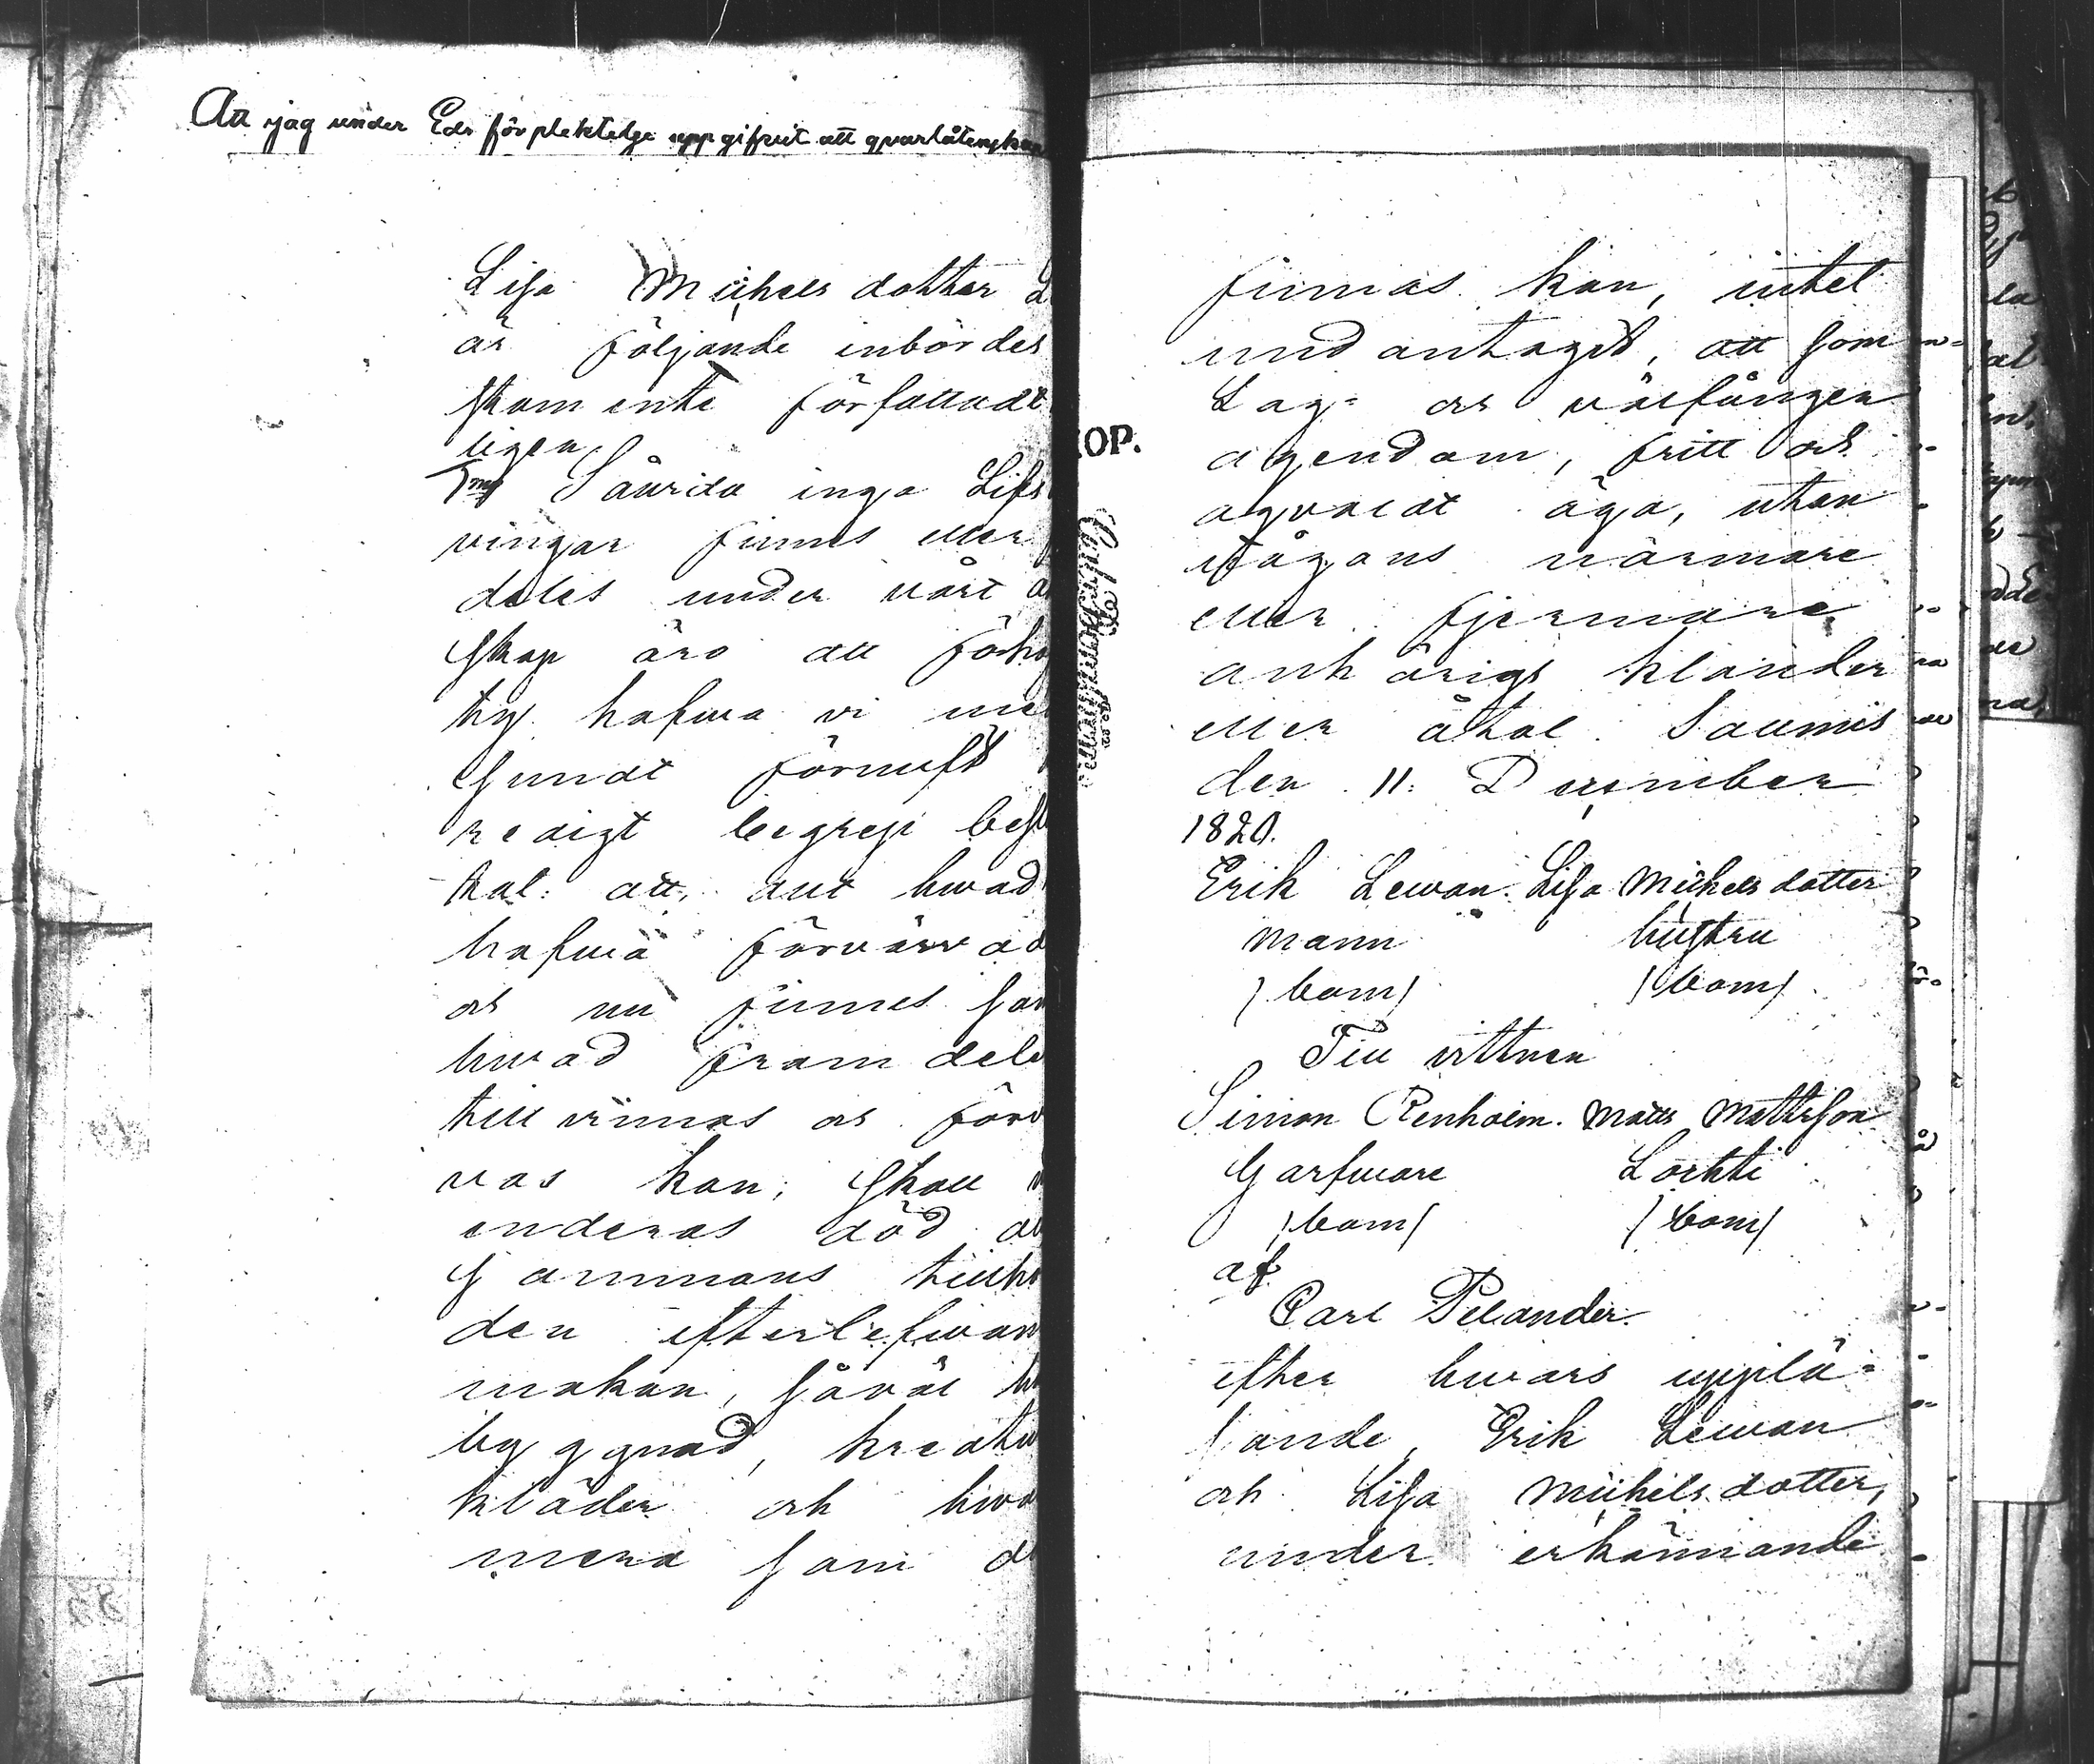 Att jag under Eds förplektelge uppgifvit att qvarlåtenskap
Lisa Michels dotter L
är följande inbördes
stamente författadt
ligen,
Såvida inga Lifs
vingar finnes eller
deles under vårt ä
skap äro att förho
ty hafwa vi me
sundt förnuft
redigt begrep besl
tat: att, allt hwad
hafwa förvärvad
och nu finnes sam
hwad fram dele
till vinnas och förv
vas kan; skall
enderas död
sammans tillhö
den efterlefwan
makan, såväl
byggnad, kreatu
kläder och hwa
mera som d
OP.
finnas kan, intet
undantaget, att som
Lag- och välfången
agendom, fritt och
aqvaldt äga, utan
någons närmare
eller fjermare
anhörigs klander
eller åtal. Saumis
den 11. December
1820.
Erik Lewan. Lisa Michels dotter
Mann hustru
/:bom:/ /:bom:/
Till vittnen
Simon Renholm. Matts Mattsson
Garfware Lortti
/:bom:/ /:bom:/
af
Carl Pelander.
efter hwars upplä-
sande, Erik Lewan
och Lisa Michels dotter,
under erkännande